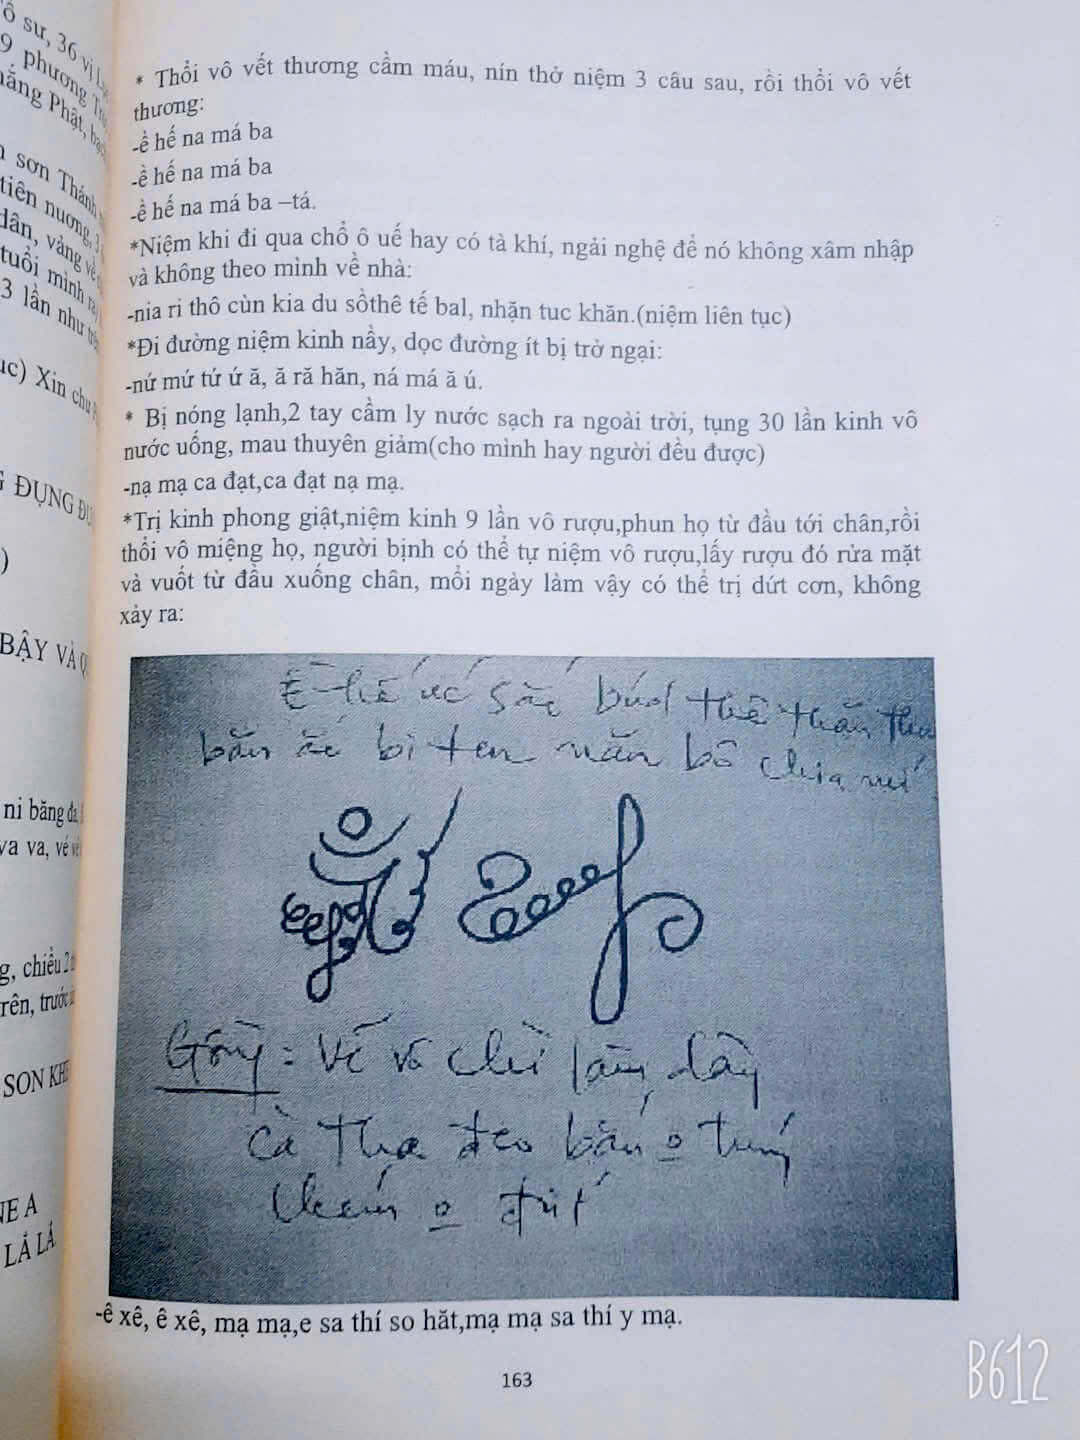 ổ sư, 36 vị
9 phương
hắng Phật, bạch
sơn Thánh
tiên nương, 3
dân, vàng về
tuổi mình ra
3 lần như trên
ục) Xin chư
ĐỤNG
)
BẬY VÀ
ni băng đa.
va va, vé vé
g, chiều 2
rên, trước
SON KHE
NE A
LẢ LÁ
* Thổi vô vết thương cầm máu, nín thở niệm 3 câu sau, rồi thổi vô vết
thương:
-ề hế na má ba
-ề hế na má ba
-ề hế na má ba –tá.
*Niệm khi đi qua chổ ô uế hay có tà khí, ngải nghệ để nó không xâm nhập
và không theo mình về nhà:
-nia ri thô cùn kia du sồthê tế bal, nhặn tuc khăn.(niệm liên tục)
*Đi đường niệm kinh nầy, dọc đường ít bị trở ngại:
-nứ mứ tứ ứ ă, ă ră hăn, ná má ă ú.
* Bị nóng lạnh,2 tay cầm ly nước sạch ra ngoài trời, tụng 30 lần kinh vô
nước uống, mau thuyên giảm(cho mình hay người đều được)
-nạ mạ ca đạt,ca đạt nạ mạ.
*Trị kinh phong giật,niệm kinh 9 lần vô rượu,phun họ từ đầu tới chân,rồi
thổi vô miệng họ, người bịnh có thể tự niệm vô rượu,lấy rượu đó rửa mặt
và vuốt từ đầu xuống chân, mổi ngày làm vậy có thể trị dứt cơn, không
xảy ra:
sắc thê thắn
bắn ắc bi ten năn bô chia
Gồng: Vẽ vô chì làm dây
cà tha đeo bắn o trúng
chém o đứt
-ê xê, ê xê, mạ mạ,e sa thí so hăt,mạ mạ sa thí y mạ.
163
B612